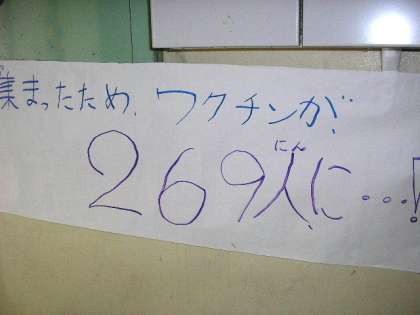 集まったため、ワクチンが、
269人に…!
にん